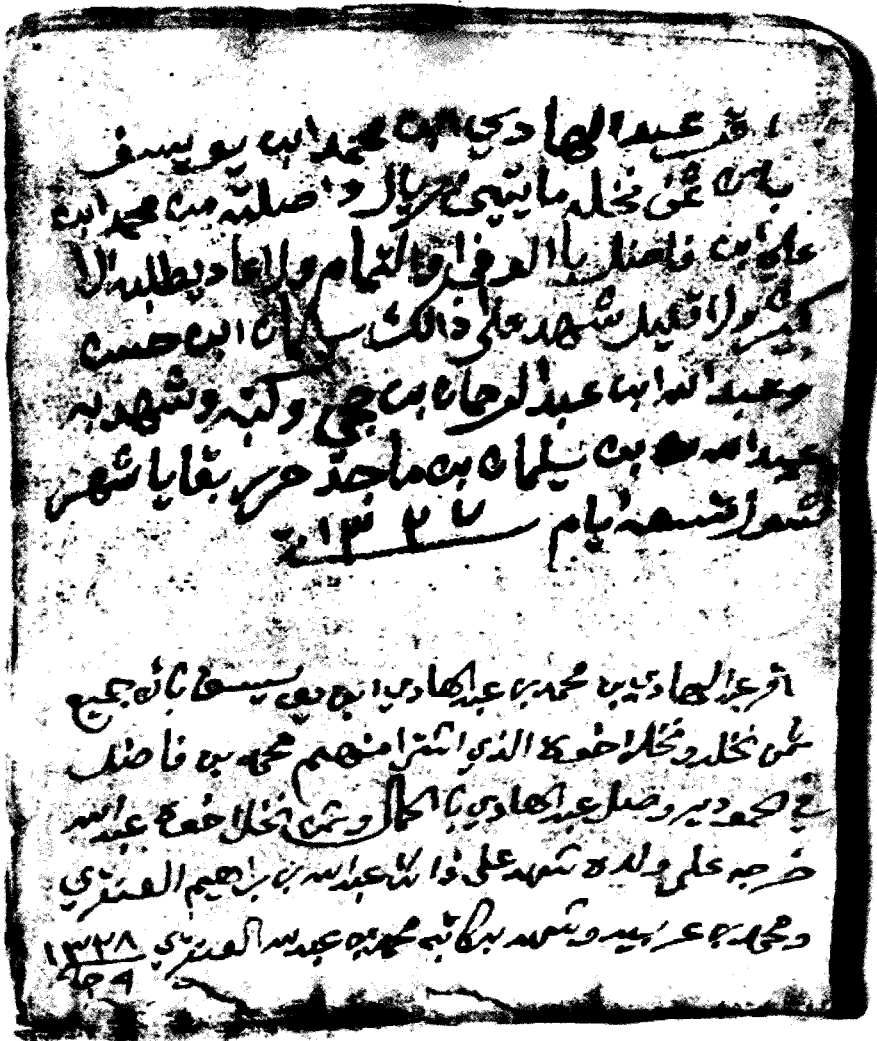 اقر عبد الهادي ابن محمد ابن يويسف
بان ثمن نخله مايتين ريال واصلته من محمد ابن
علي بن فاضل باالوفا والتمام ولا عاد يطلبه لا
كثير ولا قليل شهد على ذالك سلمان ابن حسن
وعبد الله ابن عبد الرحمان بن حجي وكتبه وشهد به
عبد الله بن سلمان بن ماجد حرر بقايا شهر
شوال تسعة ايام ١٣٢٧
اقر عبد الهادي بن محمد بن عبد الهادي ابن يويسف بان جميع
ثمن نخله ونخل اخوه الذي اشترا منهم محمد بن فاضل
في وصل عبد الهادي باالكمال وثمن نخل اخوه عبد الله
خرجه على ولده شهد على ذالك عبد الله بن براهيم العنقري
ومحمد بن وشهد به كاتبه محمد بن عبد الله العنقري ١٣٢٨